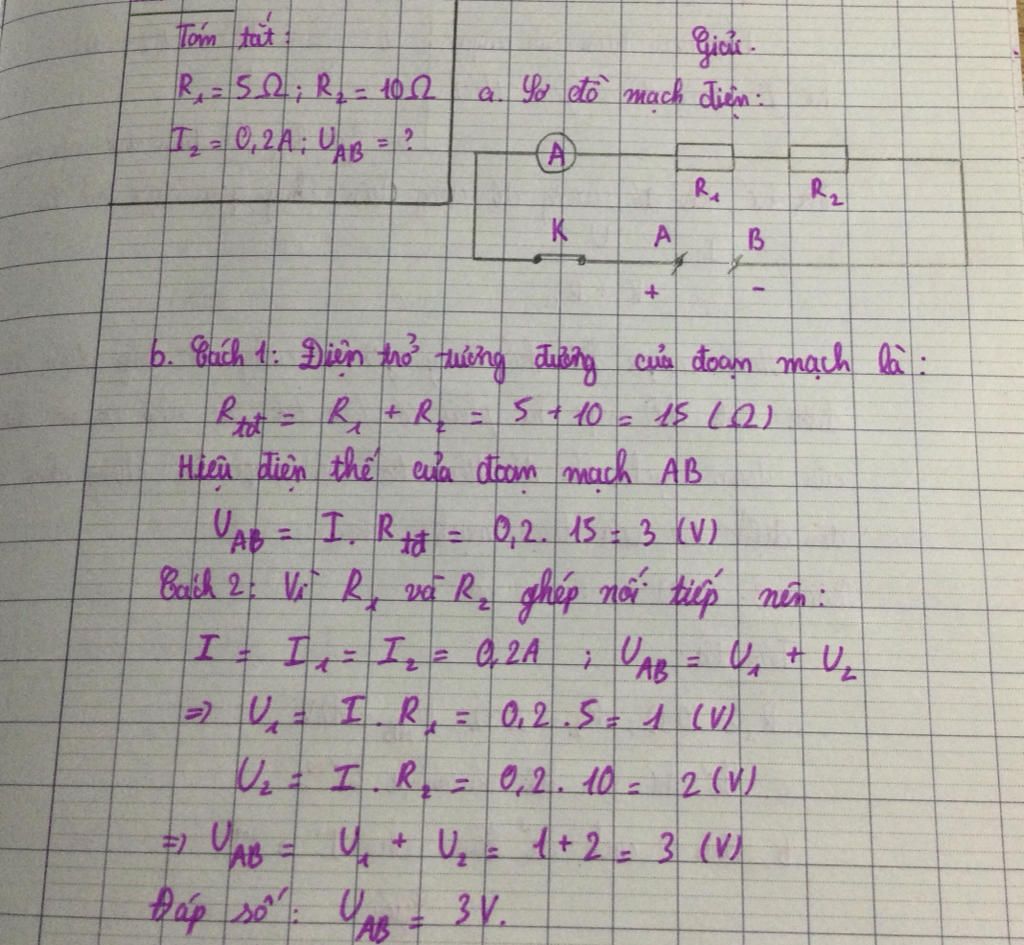 Tóm tắt:
R₁ = 5Ω ; R₂ = 10Ω
I₂ = 0,2A ; U_AB = ?
Giải.
a. Sơ đồ mạch điện:
A
R₁ R₂
K A B
+ -
b. Cách 1: Điện trở tương đương của đoạn mạch là:
R_tđ = R₁ + R₂ = 5 + 10 = 15 (Ω)
Hiệu điện thế của đoạn mạch AB
U_AB = I. R_tđ = 0,2. 15 = 3 (V)
Cách 2: Vì R₁ và R₂ ghép nối tiếp nên:
I = I₁ = I₂ = 0,2A ; U_AB = U₁ + U₂
=> U₁ = I . R₁ = 0,2 . 5 = 1 (V)
U₂ = I . R₂ = 0,2 . 10 = 2 (V)
=> U_AB = U₁ + U₂ = 1 + 2 = 3 (V)
Đáp số: U_AB = 3V.